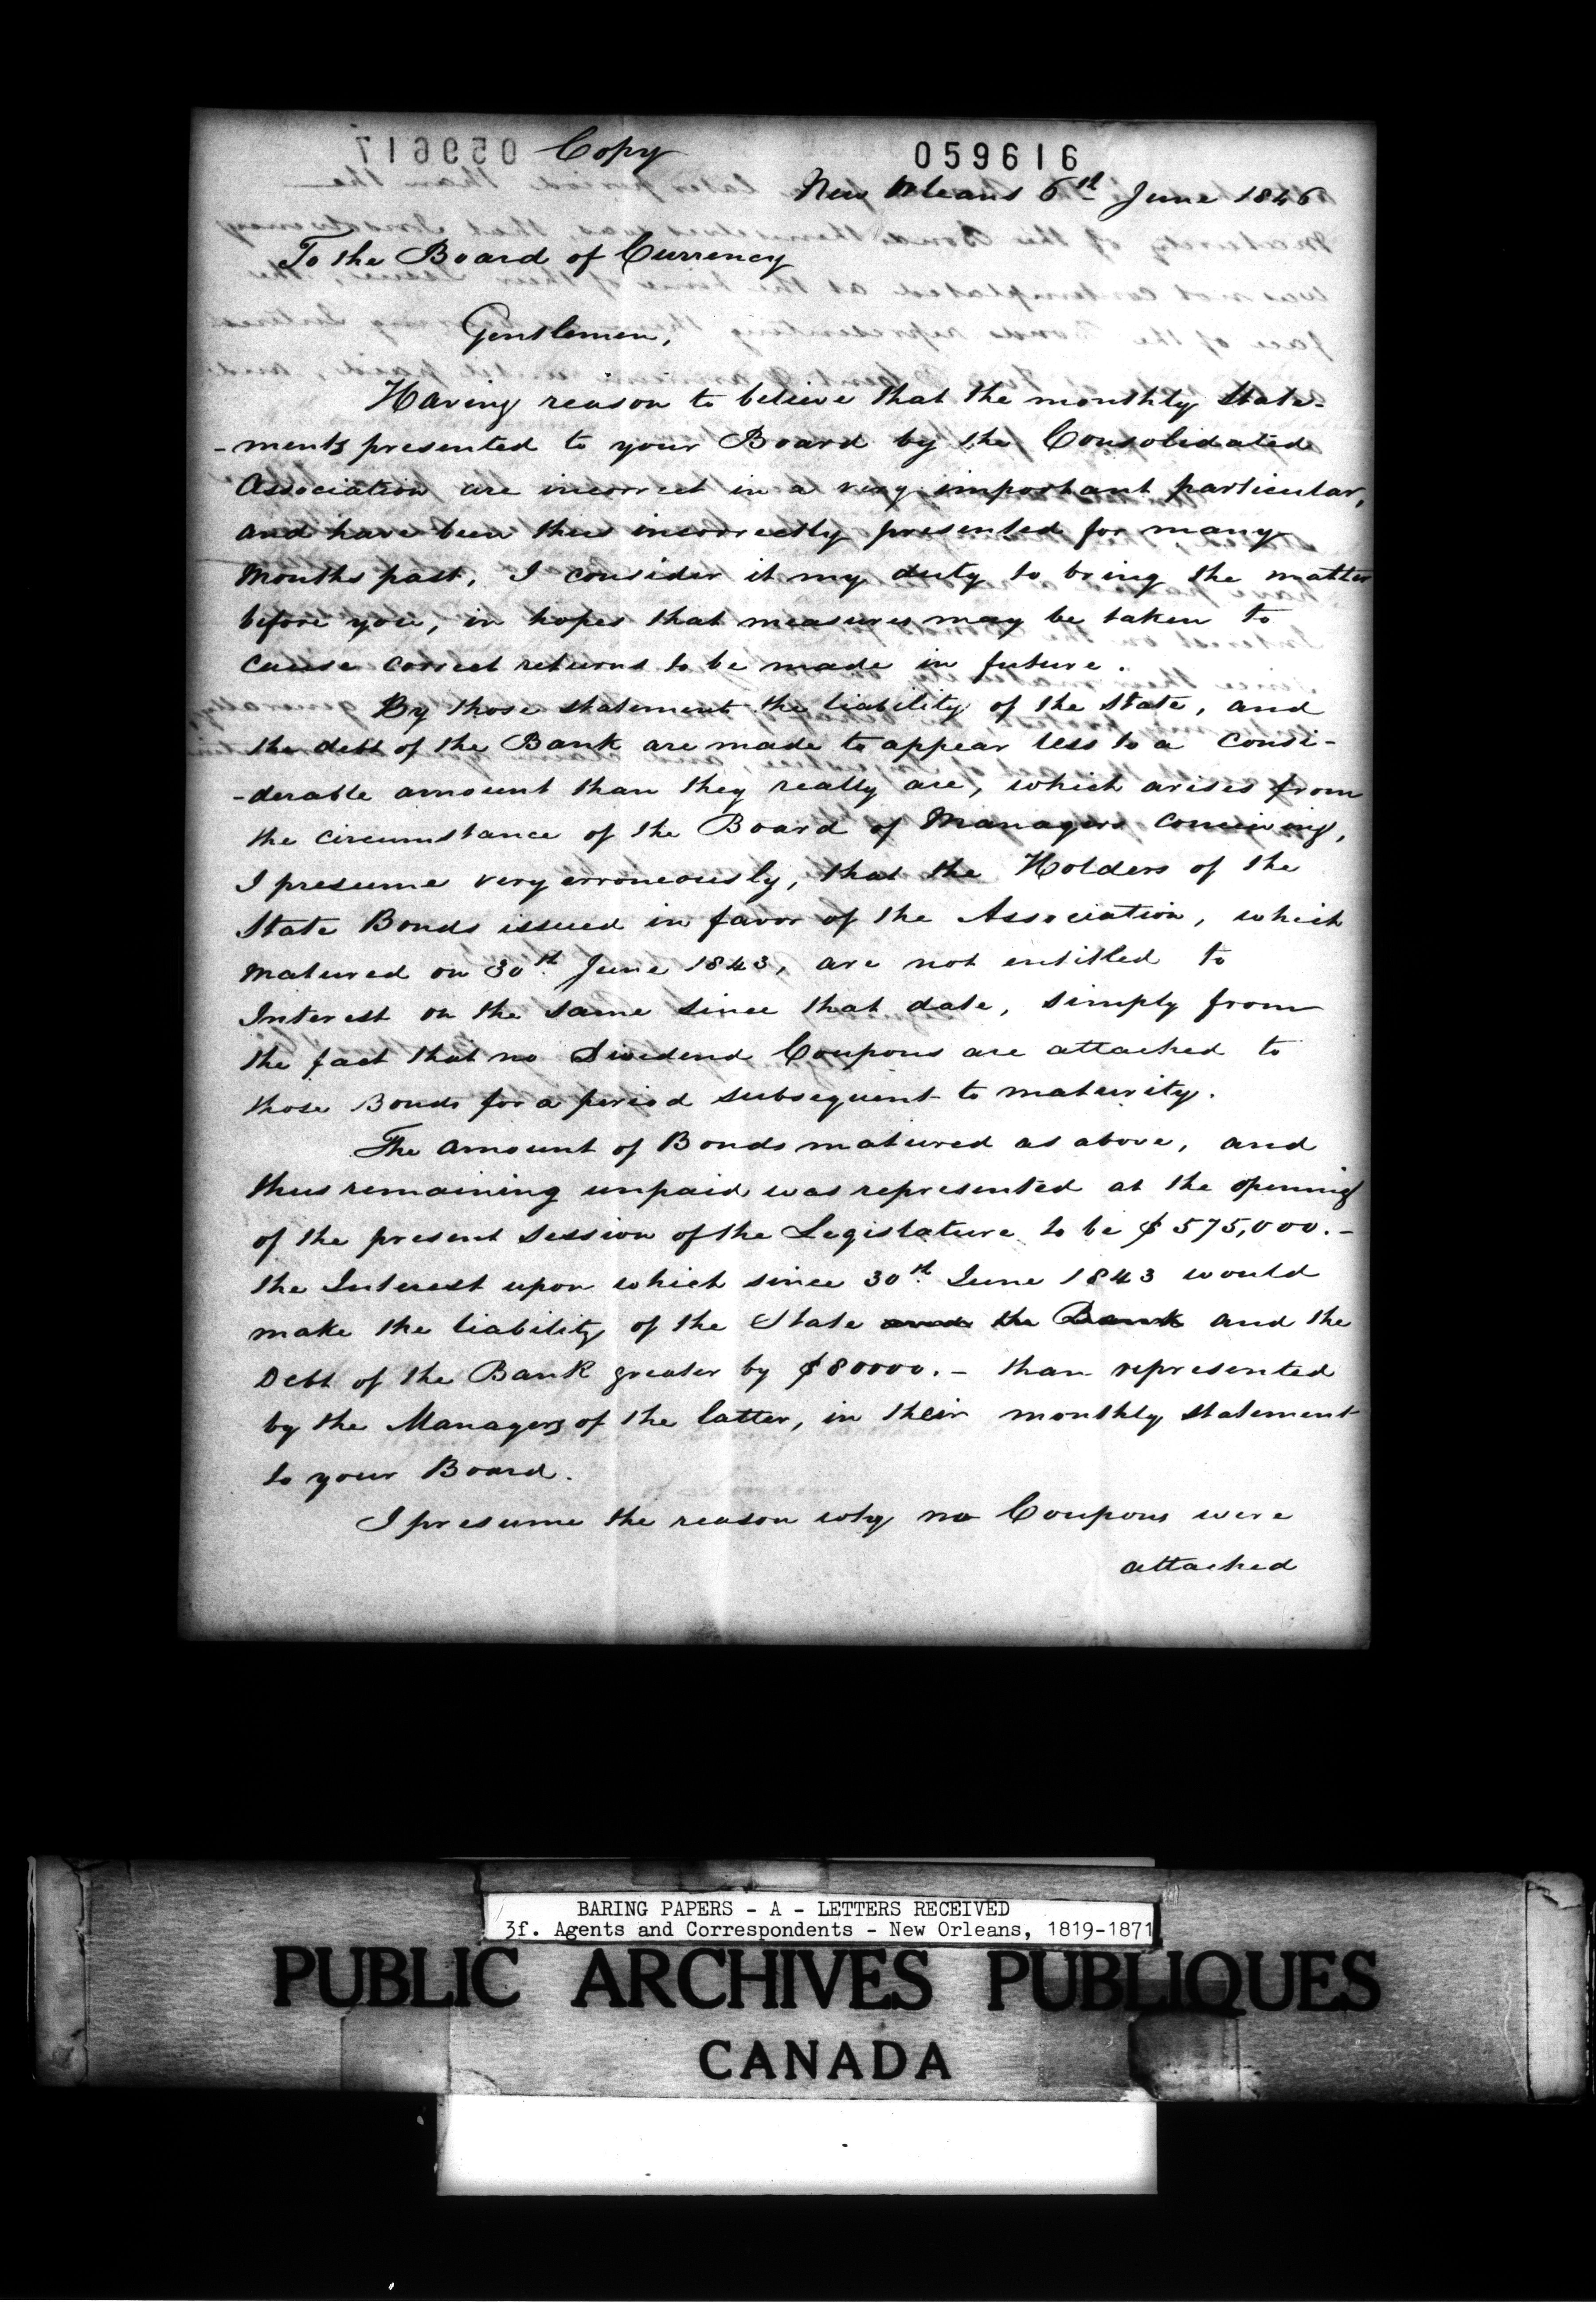 Copy
059616
New Orleans 6th June 1846
To the Board of Currency
Gentlemen,
Having reason to believe that the monthly state-
-ments presented to your Board by the Consolidated
Association are incorrect in a very important particular,
and have been thus incorrectly presented for many
months past, I consider it my duty to bring the matter
before you, in hopes that measures may be taken to
cause correct returns to be made in future.
By those statements the liability of the State, and
the debt of the Bank are made to appear less to a consi-
-derable amount than they really are, which arises from
the circumstance of the Board of Managers conceiving,
I presume very erroneously, that the Holders of the
State Bonds issued in favor of the Association, which
matured on 30th June 1843, are not entitled to
Interest on the same since that date, simply from
the fact that no Dividend Coupons are attached to
those Bonds for a period subsequent to maturity.
The amount of Bonds matured as above, and
thus remaining unpaid was represented at the opening
of the present Session of the Legislature to be $575,000.-
the Interest upon which since 30th June 1843 would
make the liability of the State and the Bank and the
Debt of the Bank greater by $80000.- than represented
by the Managers of the latter, in their monthly statement
to your Board.
I presume the reason why no Coupons were
attached
BARING PAPERS - A - LETTERS RECEIVED
3f. Agents and Correspondents - New Orleans, 1819-1871
PUBLIC ARCHIVES PUBLIQUES
CANADA